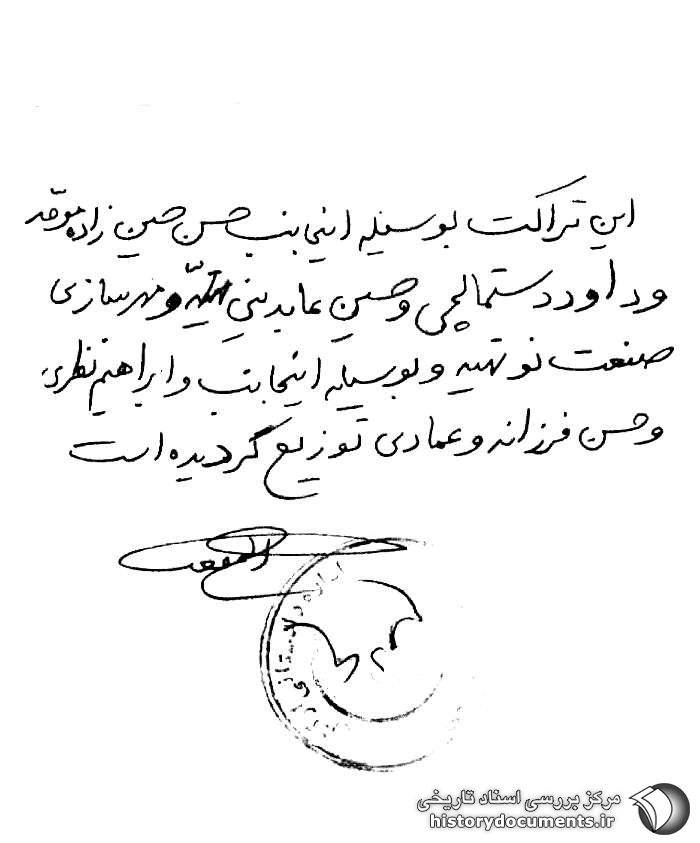 این تراکت بوسیله اینجانب حسن حسین زاده موحد
و داود دستمالچی و حسین عابدینی و مهرسازی
صنعت نو تهیه و بوسیله اینجانب و ابراهیم نظری
و حسن فرزانه و عمادی توزیع گردیده است
اداره دادستانی
مرکز بررسی اسناد تاریخی
historydocuments.ir